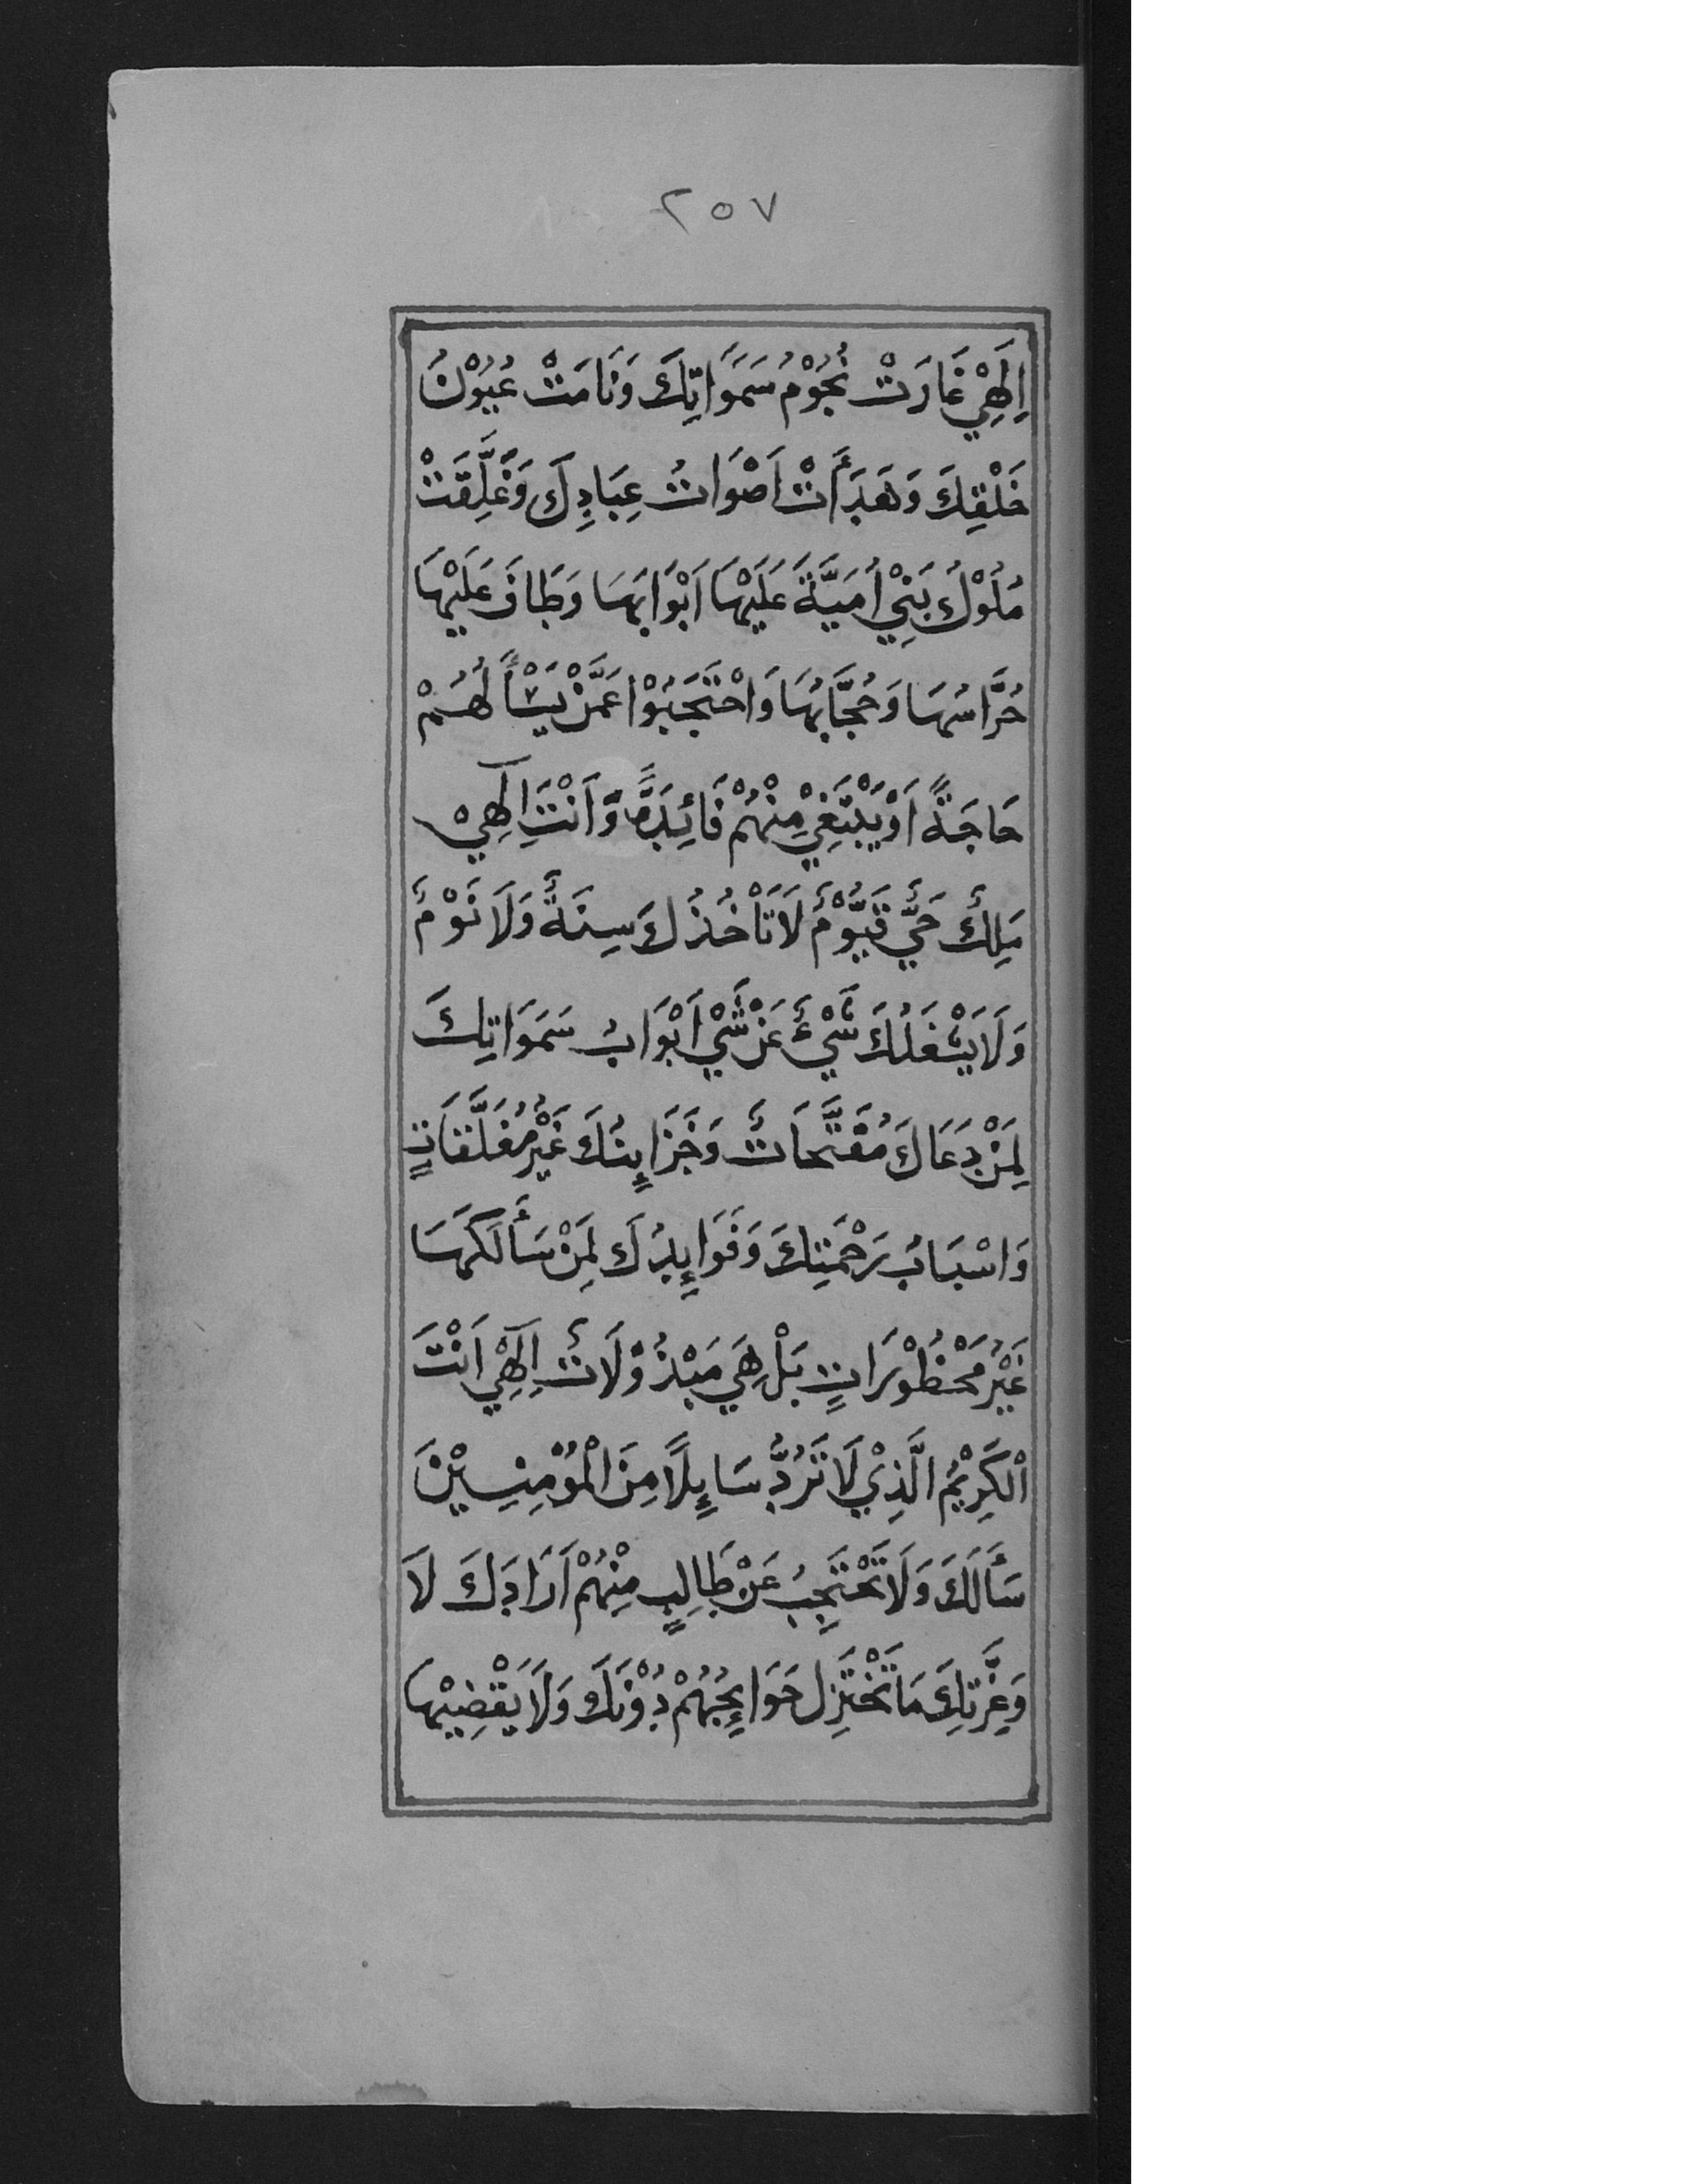 ٢٥٧
اِلَهِيْ غَارَتْ نُجُوْمُ سَمَوَاتِكَ وَنَامَتْ عُيُوْنُ
خَلْقِكَ وَهَدَأَتْ اَصْوَاتُ عِبَادِكَ وَغَلَّقَتْ
مُلُوْكُ بَنِيْ اُمَيَّةَ عَلَيْهَا اَبْوَابَهَا وَطَافَ عَلَيْهَا
حُرَّاسُهَا وَحُجَّابُهَا وَاحْتَجَبُوْا عَمَّنْ يَسْأَلُهُمْ
حَاجَةً اَوْ يَبْتَغِيْ مِنْهُمْ فَائِدَةً وَاَنْتَ اِلٰهِيْ
مَلِكٌ حَيٌّ قَيُّوْمٌ لَا تَأْخُذُكَ سِنَةٌ وَلَا نَوْمٌ
وَلَا يَشْغَلُكَ شَيْءٌ عَنْ شَيْ اَبْوَابُ سَمَوَاتِكَ
لِمَنْ دَعَاكَ مُفَتَّحَاتٌ وَخَزَايِنُكَ غَيْرُ مُغَلَّقَاتٍ
وَاسْبَابُ رَحْمَتِكَ وَفَوَايِدُكَ لِمَنْ سَأَلَكَهَا
غَيْرُ مَحْظُوْرَاتٍ بَلْ هِيَ مَبْذُوْلَاتٌ اِلٰهِيْ اَنْتَ
اْلكَرِيْمُ الَّذِيْ لَا تَرُدُّ سَايِلًا مِنَ الْمُؤْمِنِيْنَ
سَأَلَكَ وَلَا تَحْتَجِبُ عَنْ طَالِبٍ مِنْهُمْ اَرَادَكَ لَا
وَعِزَّتِكَ مَا تَخْتَزِل حَوَايِجُهُمْ دُوْنَكَ وَلَا يَقْضِيْهَا